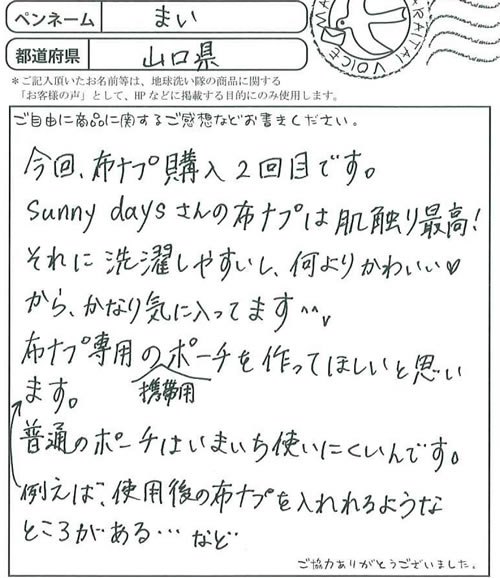 ペンネーム まい
都道府県 山口県
ARAITAI VOICE
*ご記入頂いたお名前等は、地球洗い隊の商品に関する
「お客様の声」として、HPなどに掲載する目的にのみ使用します。
ご自由に商品に関するご感想などお書きください。
今回、布ナプ購入2回目です。
sunny daysさんの布ナプは肌触り最高!
それに洗濯しやすいし、何よりかわいい♡
から、かなり気に入ってます^^
布ナプ専用のポーチを作ってほしいと思い
携帯用
ます。
普通のポーチはいまいち使いにくいんです。
例えば、使用後の布ナプを入れれるような
ところがある… など
ご協力ありがとうございました。